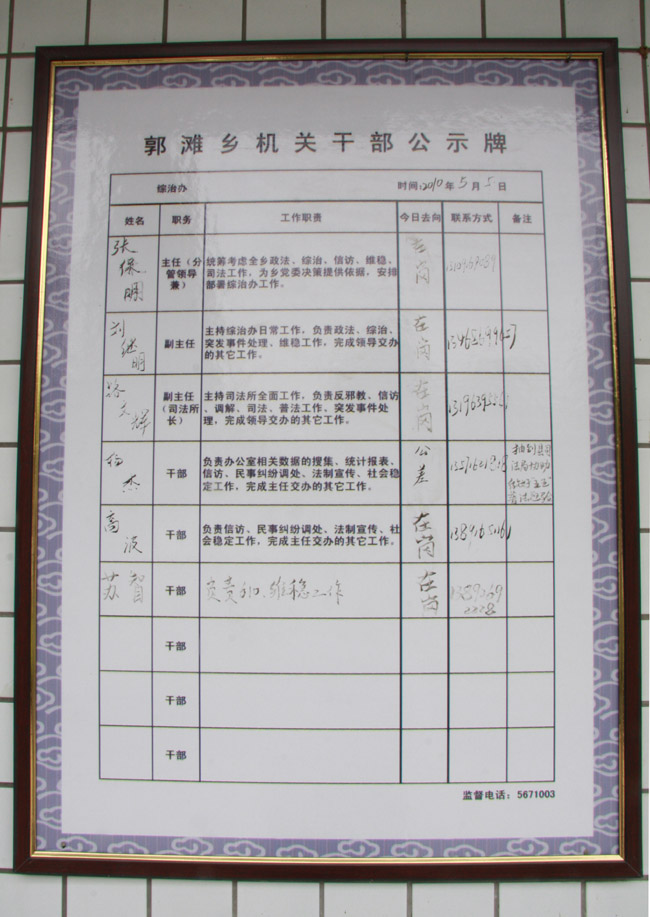 郭滩乡机关干部公示牌
综治办 时间:2010年5月5日
姓名 职务 工作职责 今日去向 联系方式 备注
张保明 主任（分管领导兼） 在岗
统筹考虑全乡政法、综治、信访、维稳、
司法工作，为乡党委决策提供依据，安排
部署综治办工作。
刘继明 副主任 在岗
主持综治办日常工作，负责政法、综治、
突发事件处理、维稳工作，完成领导交办
的其它工作。
文辉 副主任（司法所长） 在岗
主持司法所全面工作，负责反邪教、信访
、调解、司法、普法工作、突发事件处
理，完成领导交办的其它工作。
杨杰 干部 公差
负责办公室相关数据的搜集、统计报表、
信访、民事纠纷调处、法制宣传、社会稳
定工作，完成主任交办的其它工作。
高波 干部 在岗
负责信访、民事纠纷调处、法制宣传、社
会稳定工作，完成主任交办的其它工作。
苏智 干部 负责 维稳工作 在岗
干部
干部
干部
监督电话：5671003